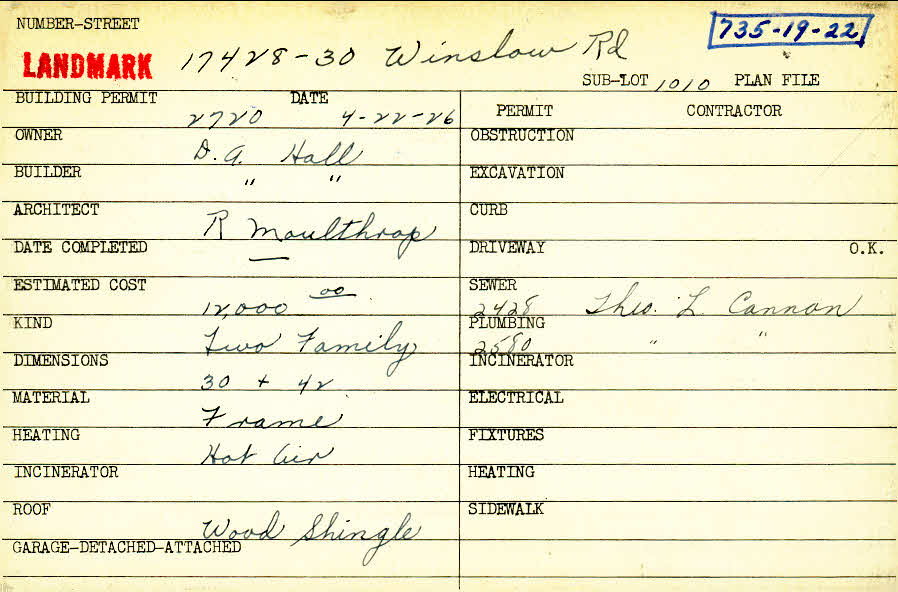 NUMBER-STREET
735-19-22
LANDMARK 17428-30 Winslow Rd
SUB-LOT 1010 PLAN FILE
BUILDING PERMIT DATE
2720 4-22-26
PERMIT CONTRACTOR
OWNER
D. A. Hall
OBSTRUCTION
BUILDER
" "
EXCAVATION
ARCHITECT
R Moulthrop
CURB
DATE COMPLETED
—
DRIVEWAY O.K.
ESTIMATED COST
12,000 00
SEWER
2428 Theo. L Cannon
KIND
Two Family
PLUMBING
2580 " "
DIMENSIONS
30 + 42
INCINERATOR
MATERIAL
Frame
ELECTRICAL
HEATING
Hot Air
FIXTURES
INCINERATOR
HEATING
ROOF
Wood Shingle
SIDEWALK
GARAGE-DETACHED-ATTACHED